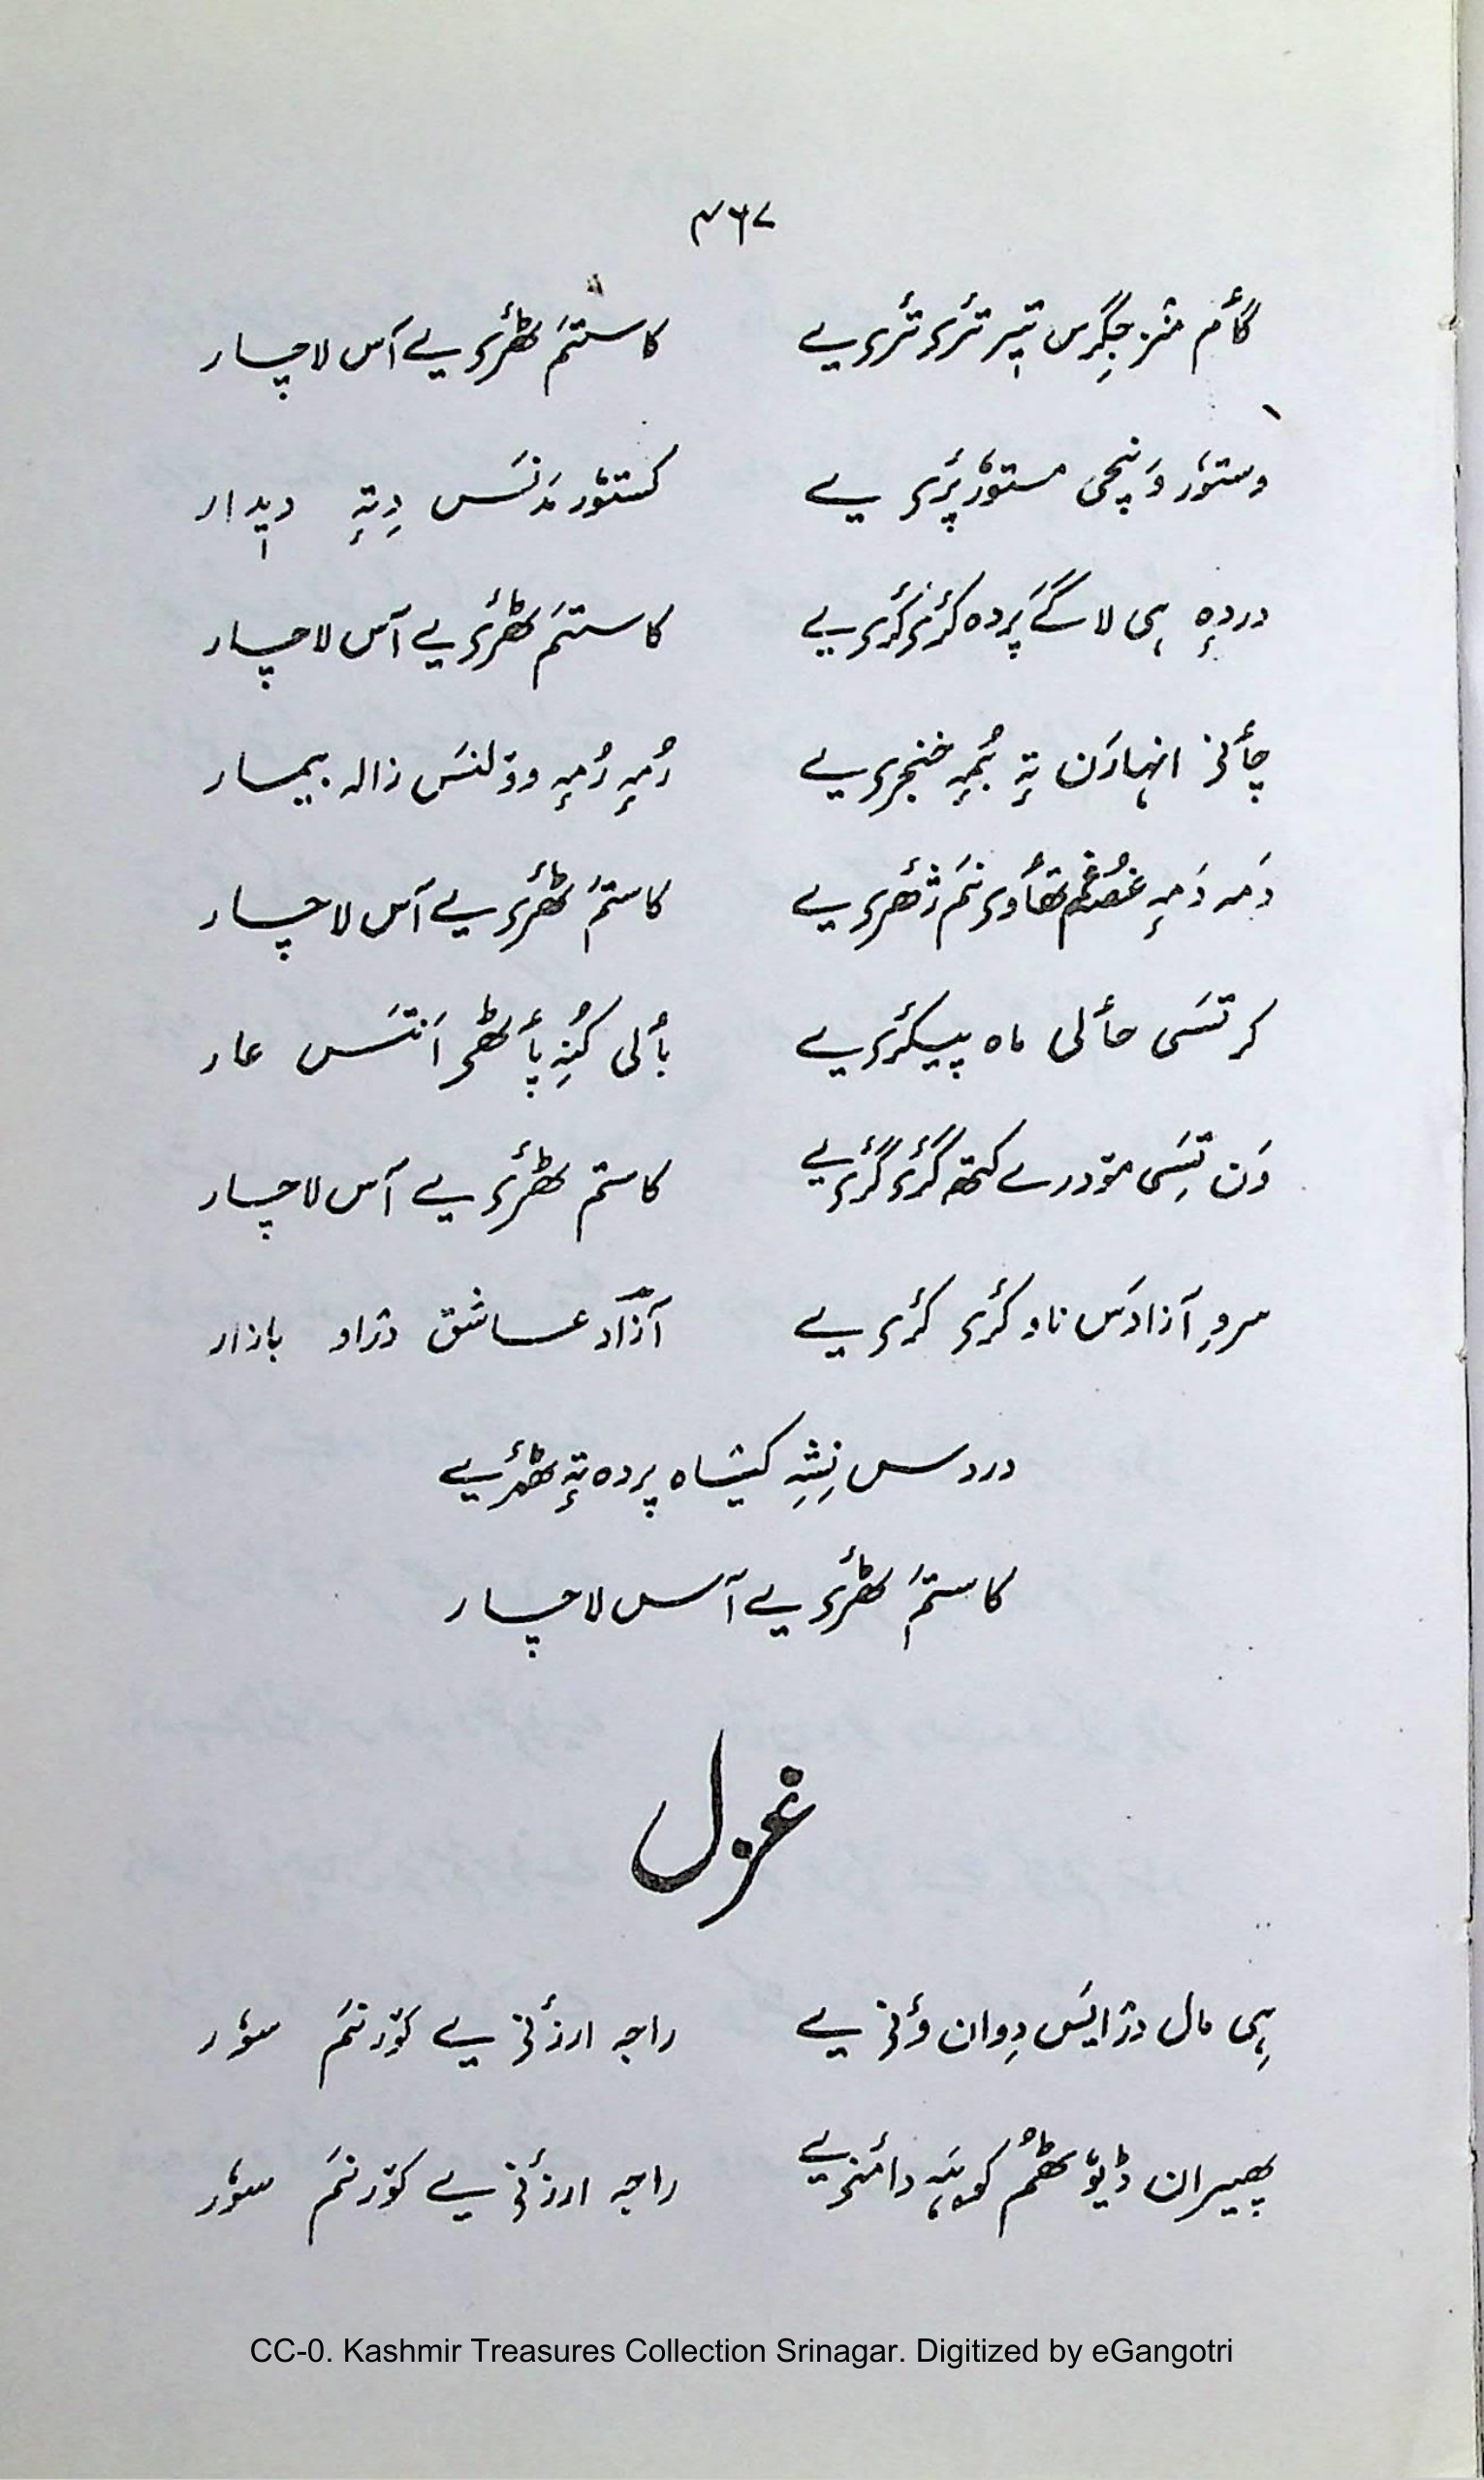 ۴۶۷
گٲم منز جِگرس تیٖر تٔرۍ تٔرۍ یے کاستَم ٹھٔرۍ یے آس لاچار
وستوٗر وَنچی مستوٗر پَرۍ یے کستوٗر مَدنَس دِتہٕ دیٖدار
دردہٕ ہی لاگے پَردہ کٔرۍ کٔرۍ یے کاستَم ٹھٔرۍ یے آس لاچار
چٲنۍ انہارَن تہٕ بُمہٕ خنجرۍ یے رُمہٕ رُمہٕ وولنَس زالہ بیمار
دَمہ دَمہٕ غُصٕم تھٲوۍ نَم ژھٔرۍ یے کاستَم ٹھٔرۍ یے آس لاچار
کر تَسی حٲلی ماہ پیکرۍ یے بٲلی کُنہِ پٲٹھۍ اَنتَس عار
وَن تَسی مودرے کتھ گٔرۍ گٔرۍ یے کاستم ٹھٔرۍ یے آس لاچار
سروِ آزادَس ناو کٔرۍ کٔرۍ یے آزاد عاشق دژاو بازار
دردس نِشہِ کیشاہ پردہ تہٕ ٹھٔرۍ یے
کاستَم ٹھٔرۍ یے آس لاچار
غزل
ہِی مال دژایَس دِوان ؤنۍ یے راجہ ارزٔنۍ یے کوٚرنَم سوٗر
پھیران ڈیوٗٹھُم کوہنہِ دامنۍ یے راجہ ارزٔنۍ یے کوٚرنَم سوٗر
CC-0. Kashmir Treasures Collection Srinagar. Digitized by eGangotri